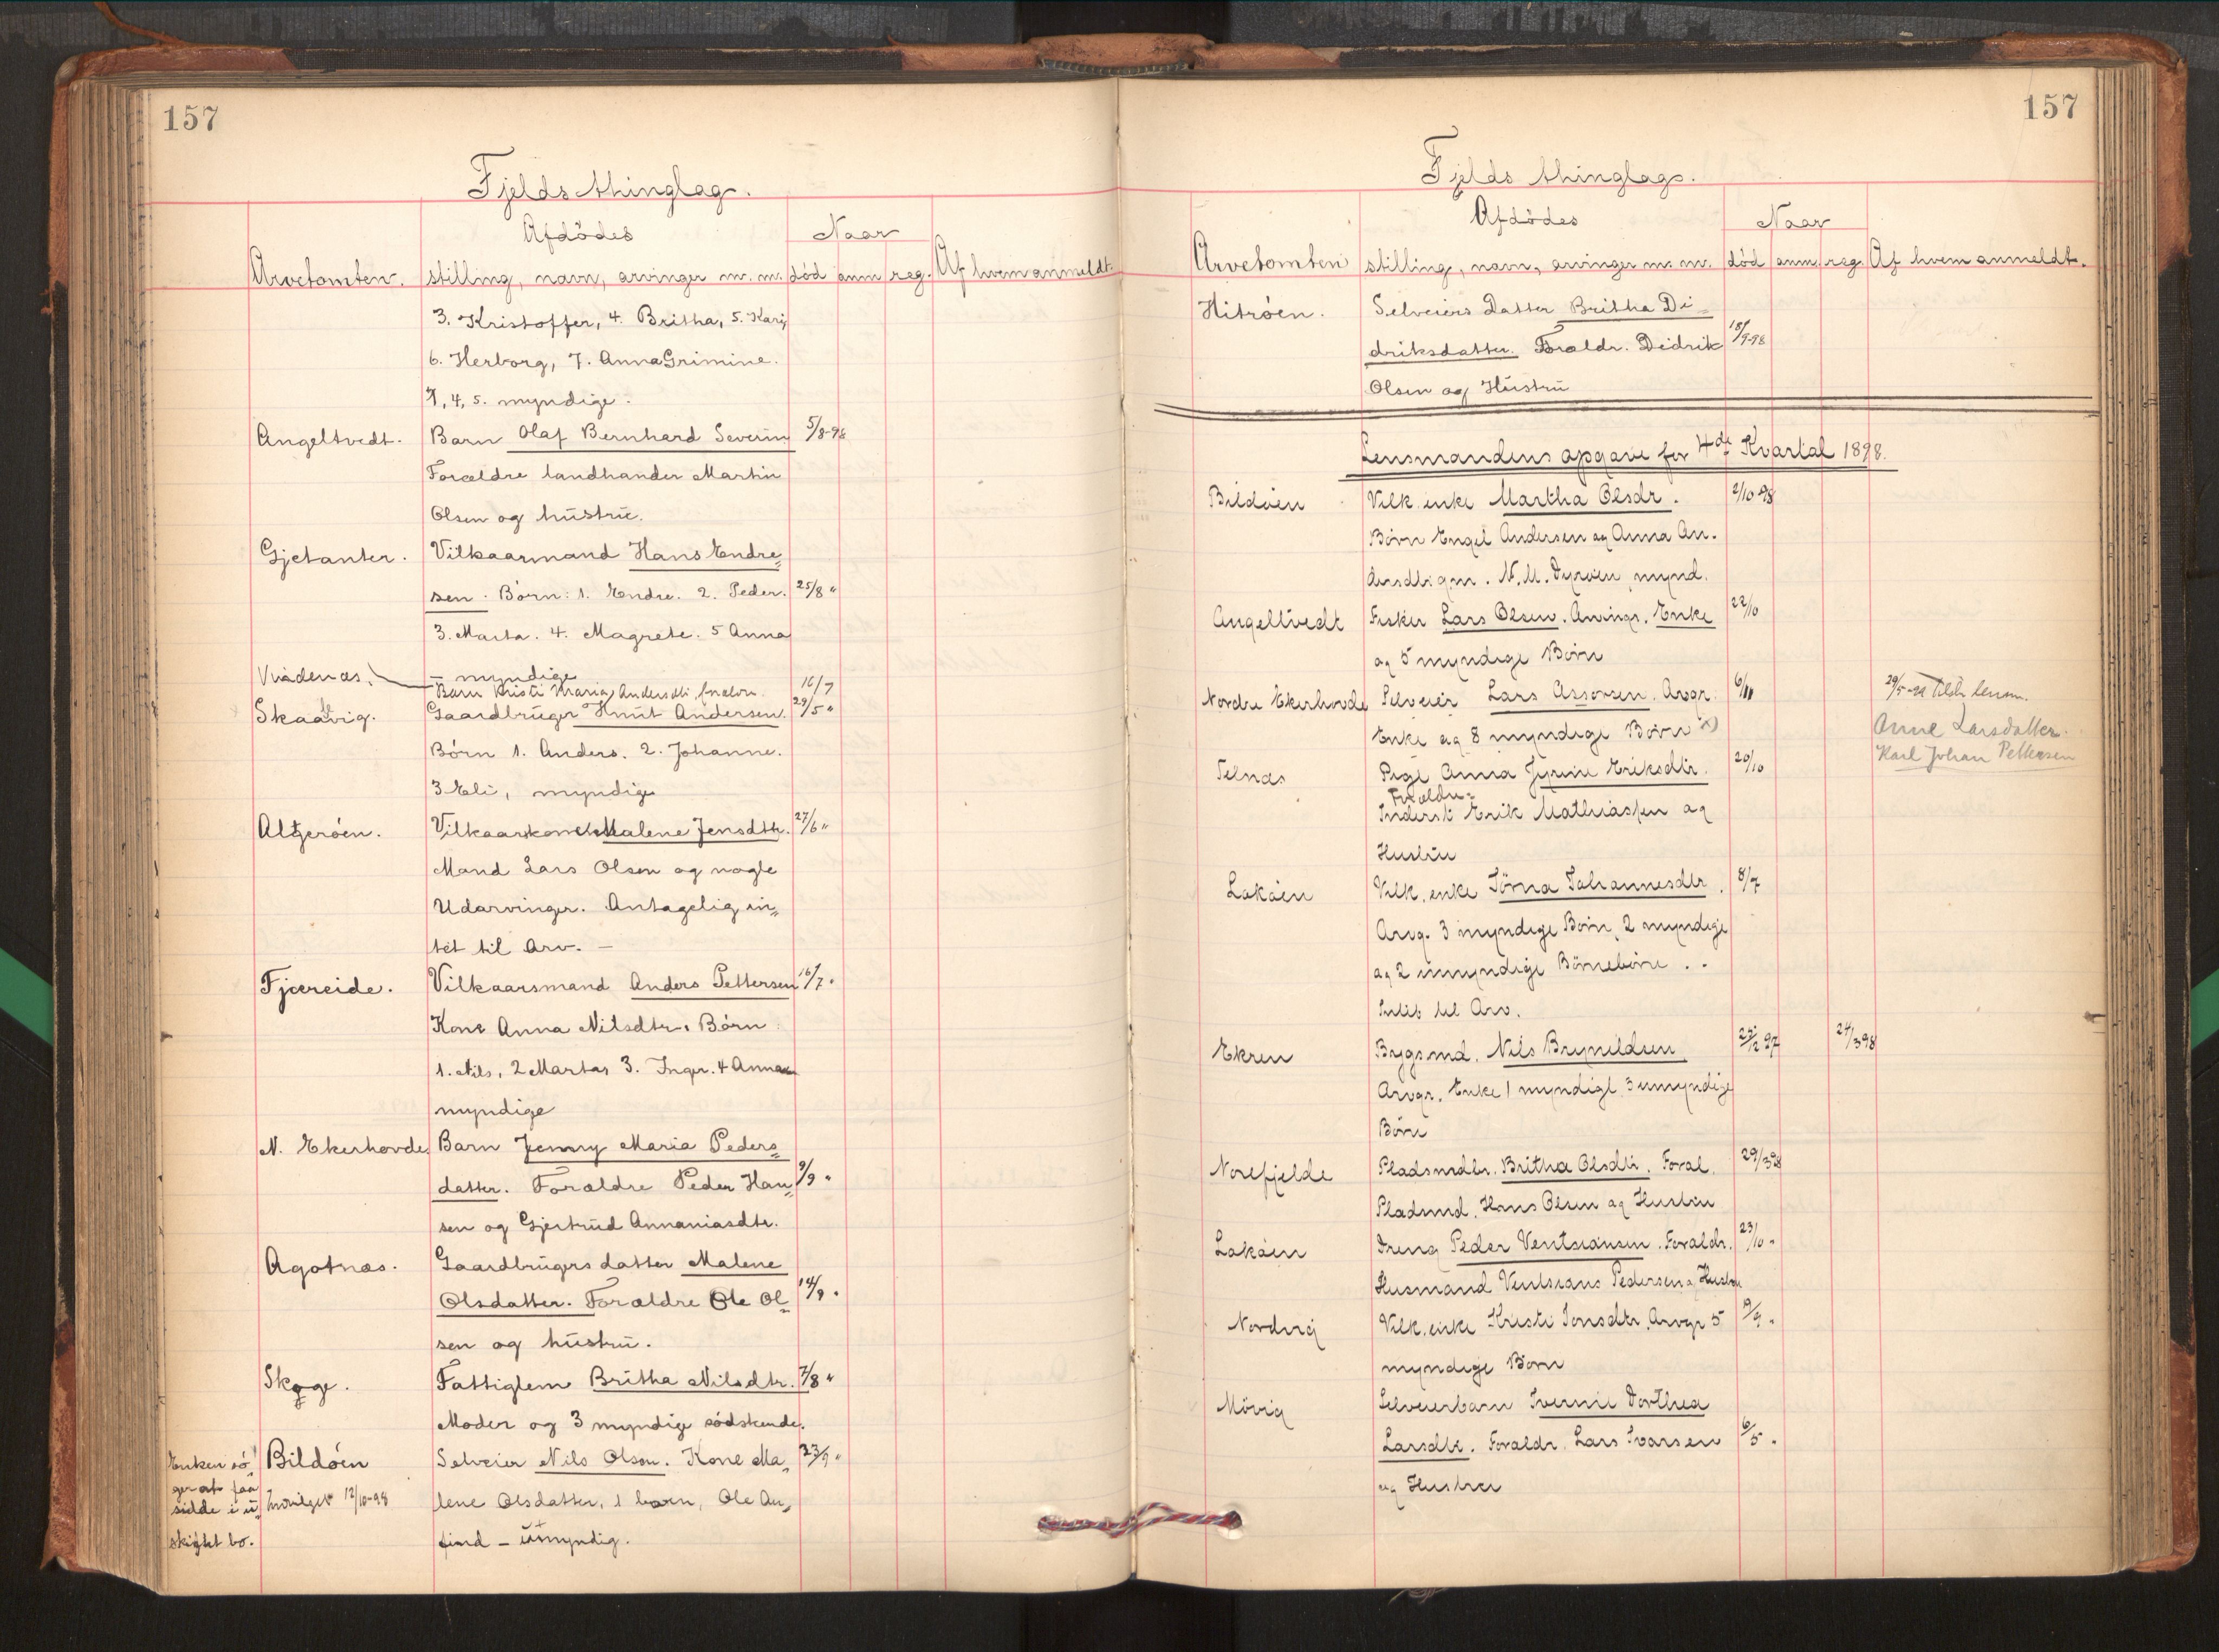 157
Fjelds thinglag.
Afdödes
Naar
Arvetomten. stilling, navn, arvinger m. m. död anm reg. Af hvem anmeldt.
3. Kristoffer, 4. Britha, 5. Kari,
6. Herborg, 7. Anna Grimine.
1, 4, 5. myndige.
Angeltvedt. Barn Olaf Bernhard Severin 5/8-98
Forældre landhander Martin
Olsen og hustru.
Gjetanter. Vilkaarmand Hans Endre=
sen. Börn: 1. Endre. 2. Peder. 25/8 "
3. Marta. 4. Magrete. 5 Anna
– myndige
Vindenæs. Barn Kristi Maria Andersdtr. 16/7
Skaalvig. Gaardbruger Knut Andersen. 29/5 "
Börn 1. Anders. 2. Johanne.
3 Eli, myndige
Algeröen. Vilkaarskone Malene Jensdtr. 27/6 "
Mand Lars Olsen og nogle
Udarvinger. Antagelig in=
tet til Arv. –
Fjæreide. Vilkaarsmand Anders Pettersen 16/7 "
Kone Anna Nilsdtr. Börn
1. Nils, 2 Marta, 3. Ingr. 4 Anna
myndige
N. Ekerhovde. Barn Jenny Maria Peders=
datter. Forældre Peder Han= 9/9 "
sen og Gjertrud Annaniasdtr.
Agotnæs. Gaardbrugers datter Malene
Olsdatter. Forældre Ole Ol= 14/9 "
sen og hustru.
Skoge. Fattiglem Britha Nilsdtr. 7/8 "
Moder og 3 myndige södskende.
Bildöen Selveier Nils Olsen. Kone Ma= 23/9 "
lene Olsdatter, 1 barn, Ole An=
find – umyndig.
Enken sö=
ger at faa
sidde i u=
skiftet bo.
Indvilget 12/10-98
157
Fjelds thinglag.
Afdödes
Naar
Arvetomten stilling, navn, arvinger m. m. död anm. reg. Af hvem anmeldt.
Hitröen. Selveiers Datter Britha Di=
driksdatter. Foraldr. Didrik 18/9-98
Olsen og Hustru
Lensmandens opgave for 4de Kvartal 1898.
Bildöen Vilk. enke Martha Olsdr. 2/10 98
Börn Engel Andersen og Anna An-
dersdtr. gm. N. M. Dyröen, mynd.
Angeltvedt Fisker Lars Olsen. Arvingr. Enke 22/10
og 5 myndige Börn
Nordre Ekerhovde Selveier Lars Assorsen. Arvgr. 6/11
Enke og 8 myndige Börn x)
29/5-22 Tilstr. lensm.
Anne Larsdatter.
Karl Johan Pettersen
Telnæs Pige Anna Jyrine Eriksdtr. 20/10
Forældre:
Inderst Erik Mathiassen og
Hustru
Lokøen Vilk. enke Törna Johannesdtr. 8/7
Arvg. 3 myndige Börn, 2 myndige
og 2 umyndige Börnebörn. .
Intet til Arv.
Ekren Bygsmd. Nils Brynildsen 25/12 97 24/3 98
Arvgr. Enke 1 myndigt 3 umyndige
Börn
Norefjelde Pladsmdtr. Britha Olsdtr. Foræl. 29/3 98
Pladsmd. Hans Olsen og Hustru
Lokøen Dreng Peder Ventseansen. Foraldr. 23/10 "
Husmand Ventseans Pedersen og Hustru
Nordvig Vilk. enke Kristi Jonsdtr. Arvgr 5 19/9 "
myndige Börn
Mövig Selveierbarn Iverine Dorthea
Larsdtr. Foraldr. Lars Ivarsen 6/5 "
og Hustru